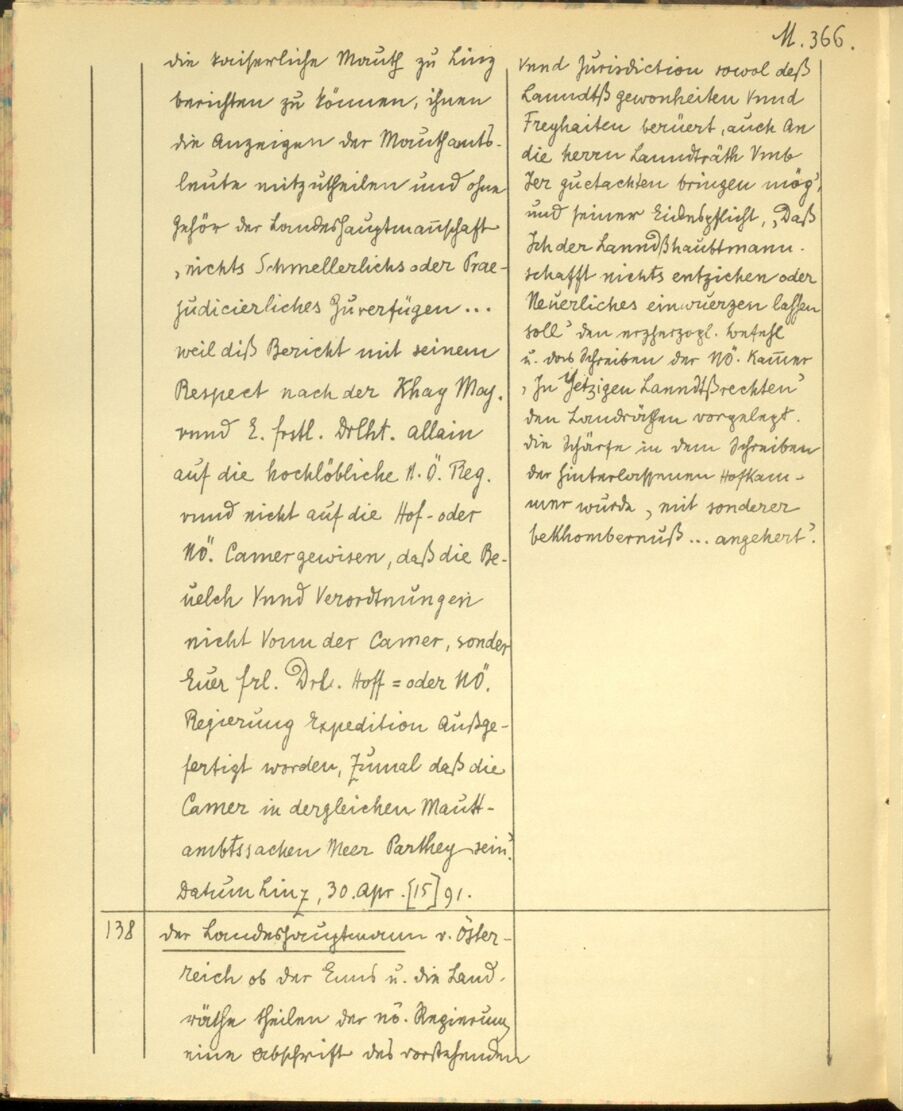 M. 366.
die kaiserliche Mauth zu Linz
berichten zu können, ihnen
die Anzeigen der Mauthamts-
leute mitzutheilen und ohne
Gehör der Landeshauptmañschaft
‚nichts Schmellerlichs oder Prae-
judicierliches Zuverfügen...
weil diß Bericht mit seinem
Respect nach der Khay May.
vnnd E. frstl. Drlht. allain
auf die hochlöbliche N.Ö. Reg.
vnnd nicht auf die Hof- oder
NÖ. Camer gewisen, daß die Be-
uelch Vnnd Verordtnungen
nicht Vonn der Camer, sonder
Euer frl. Drl. Hoff= oder NÖ.
Regierung Expedition Außge-
fertigt worden, Zumal daß die
Camer in dergleichen Mautt-
ambtssachen Meer Parthey sein‘.
Datum Linz, 30. Apr. [15]91.
138 der Landeshauptmann v. Öster-
reich ob der Enns u. die Land-
räthe theilen der nö. Regierung
eine Abschrift des vorstehenden
Vnnd Jurisdiction sowol deß
Lanndtß gewonheiten Vnnd
Freyhaiten berüert, auch An
die herrn Lanndträth Vmb
Jer guetachten bringen mög‘,
und seiner Eidespflicht, ‚Daß
Ich der Lanndßhaubtmann-
schafft nichts entziehen oder
Neuerliches einwuerzen lassen
soll‘ den erzherzogl. Befehl
u. das Schreiben der NÖ. Kam̄er
‚In Yetzigen Lanndtßrechten‘
den Landräthen vorgelegt.
die Schärfe in dem Schreiben
der hinterlassenen Hofkam-
mer wurde ‚mit sonderer
bekhombernuß... angehert‘.